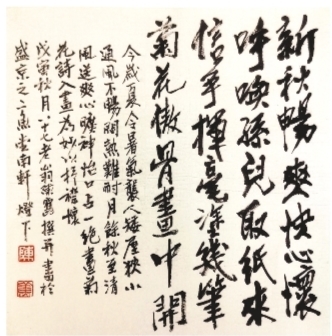 新秋暢爽快心懷
呼喚孫兒取紙來
信手揮毫塗幾筆
菊花傲骨畫中開
今歲夏令暑氣襲人矮屋狹小
通風不暢悶熱難耐月餘秋至清
風送爽心曠神怡口占一絕畫菊
花詩入畫為妙以抒襟懷
戊寅秋月八十七老翁 撰并書於
盛京之二魚堂南軒燈下